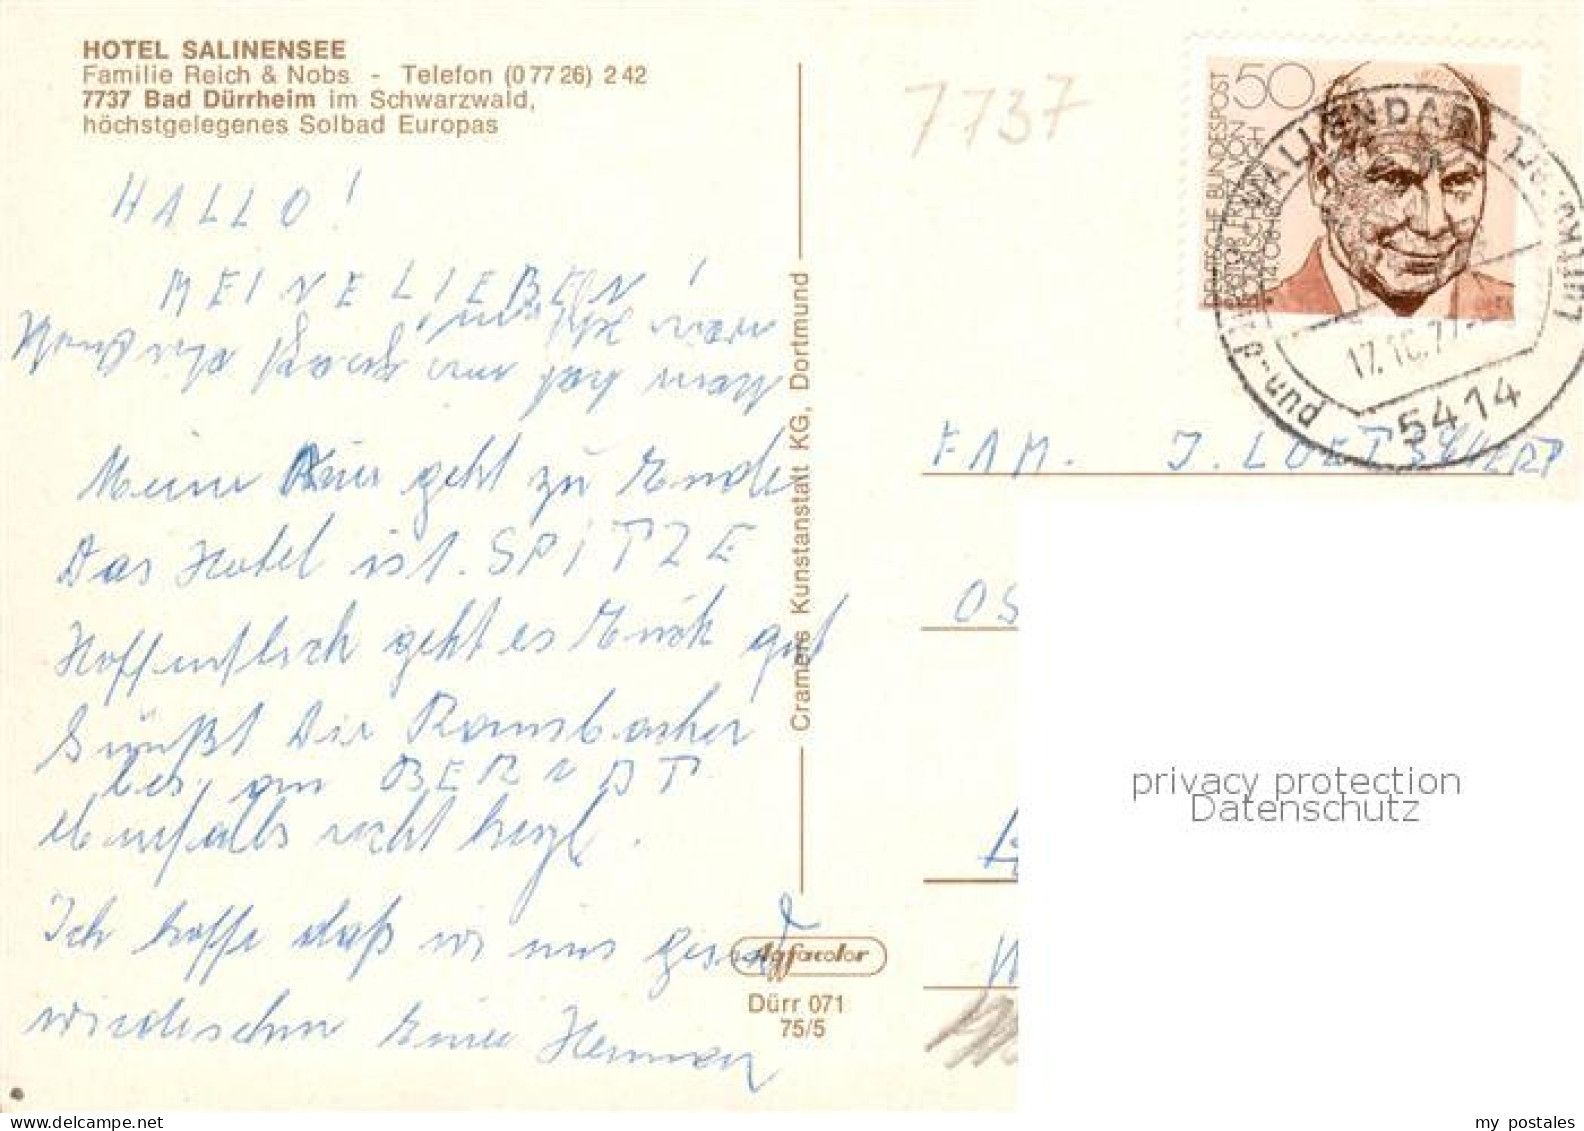 HOTEL SALINENSEE
Familie Reich & Nobs - Telefon (0 77 26) 2 42
7737 Bad Dürrheim im Schwarzwald,
höchstgelegenes Solbad Europas
HALLO!
MEINE LIEBEN!
Meine Kur geht zu Ende
Das Hotel ist. SPITZE
Hoffentlich geht es Euch gut
Grüßt die Ransbacher
bes. an
ebenfalls recht herzl.
Ich hoffe daß wir uns gesund
wiedersehn Euer
Cramers Kunstanstalt KG, Dortmund
Agfacolor
Dürr 071
75/5
7737
50
DEUTSCHE BUNDESPOST
PASTOR FRITZ VON
BODELSCHWINGH
VALLENDAR
Luftkur
und
17.10.77
5414
FAM. J. LOETSCHERT
OS
privacy protection
Datenschutz
my postales